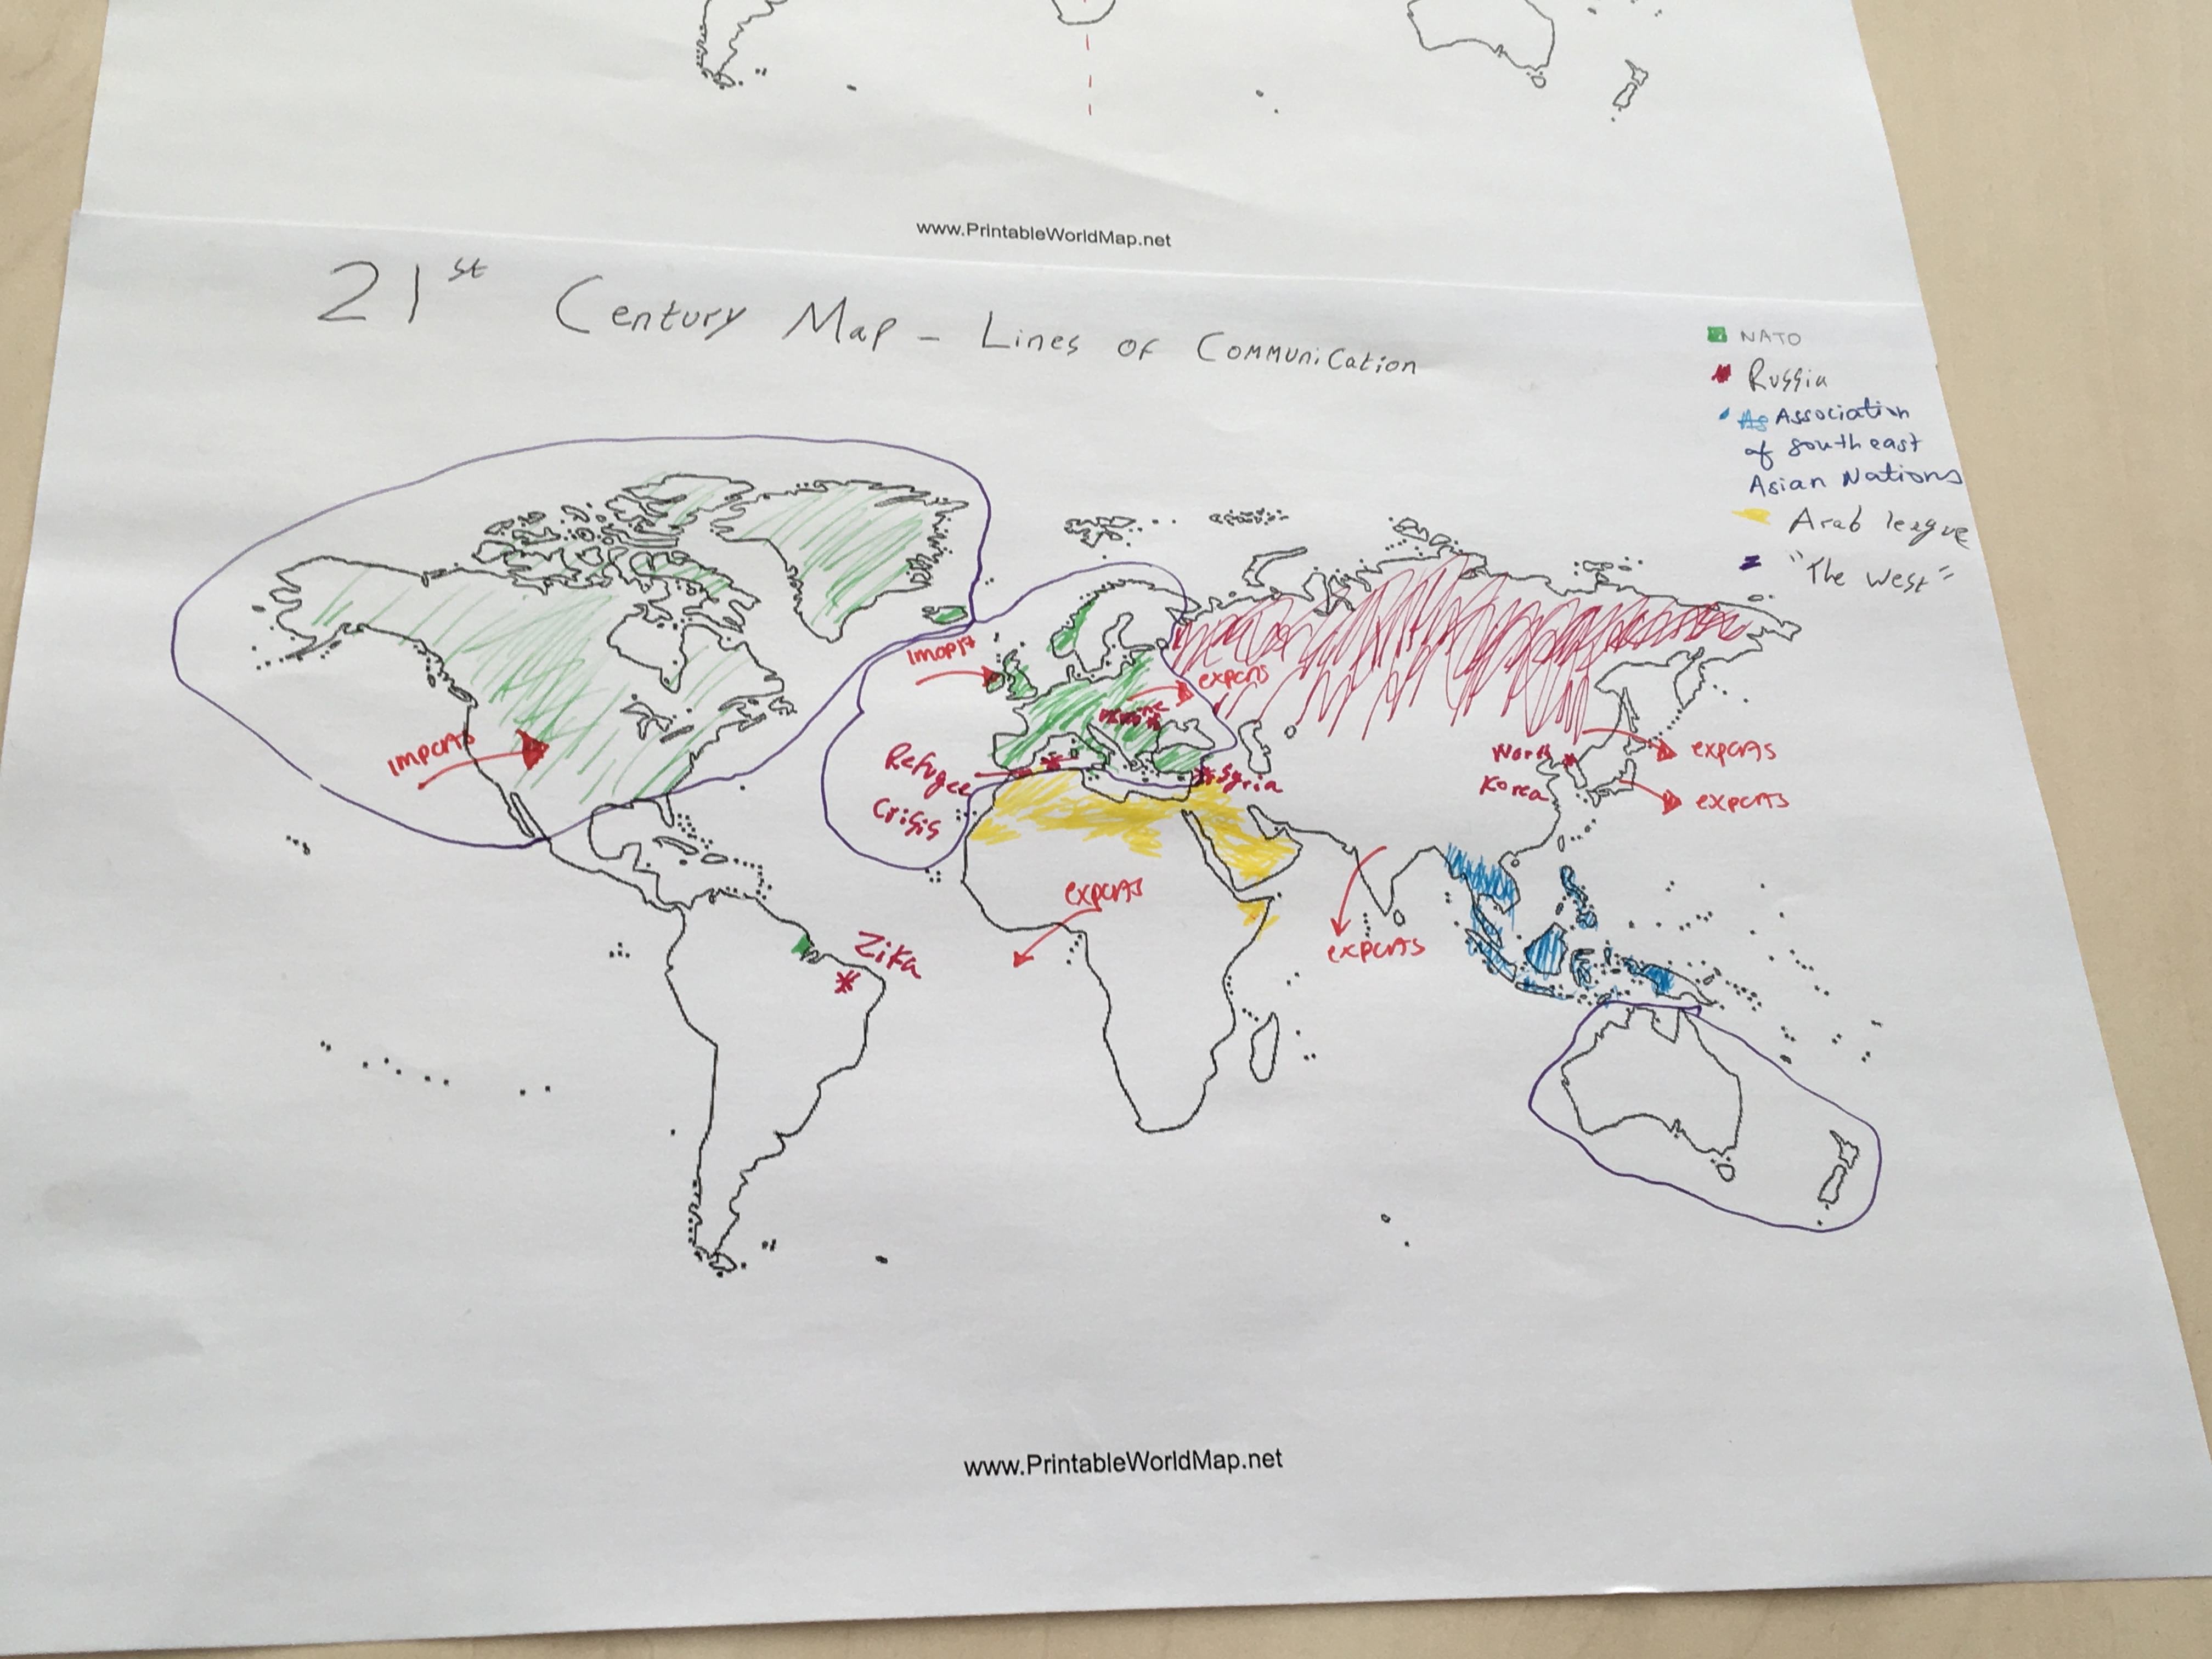 www.PrintableWorldMap.net
21st Century Map - Lines of Communication
NATO
Russia
As Association
of south east
Asian Nations
Arab league
"The West"
exports
imports
exports
Refugee
Crisis
Syria
North
Korea
exports
exports
exports
exports
Zika
www.PrintableWorldMap.net